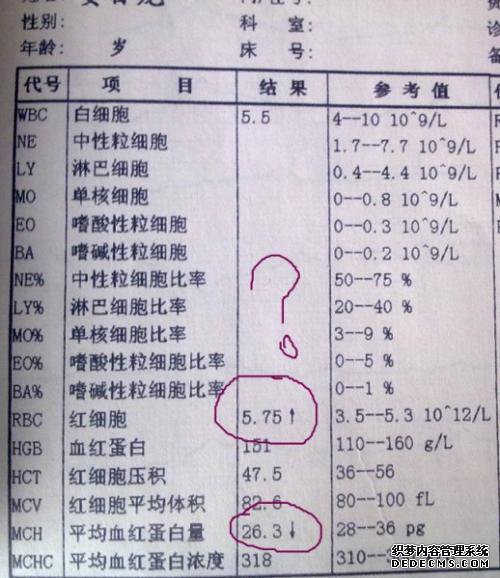 性别: 科 室:
年龄: 岁 床 号:
代号 项 目 结 果 参 考 值
WBC 白细胞 5.5 4--10 10^9/L
NE 中性粒细胞 1.7--7.7 10^9/L
LY 淋巴细胞 0.4--4.4 10^9/L
MO 单核细胞 0--0.8 10^9/L
EO 嗜酸性粒细胞 0--0.3 10^9/L
BA 嗜碱性粒细胞 0--0.2 10^9/L
NE% 中性粒细胞比率 50--75 %
LY% 淋巴细胞比率 20--40 %
MO% 单核细胞比率 3--9 %
EO% 嗜酸性粒细胞比率 0--5 %
BA% 嗜碱性粒细胞比率 0--1 %
RBC 红细胞 5.75↑ 3.5--5.3 10^12/L
HGB 血红蛋白 151 110--160 g/L
HCT 红细胞压积 47.5 36--56
MCV 红细胞平均体积 82.6 80--100 fL
MCH 平均血红蛋白量 26.3↓ 28--36 pg
MCHC 平均血红蛋白浓度 318 310--
织梦内容管理系统
DEDECMS.COM